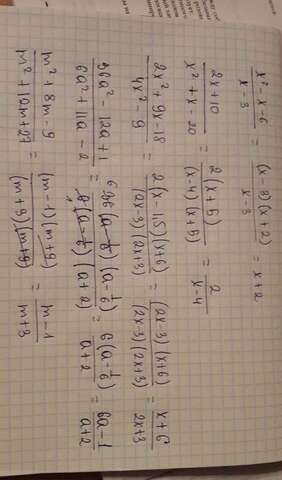 (x² - x - 6)/(x - 3) = (x - 3)(x + 2)/(x - 3) = x + 2
(2x + 10)/(x² + x - 20) = 2(x + 5)/((x - 4)(x + 5)) = 2/(x - 4)
(2x² + 9x - 18)/(4x² - 9) = 2(x - 1,5)(x + 6)/((2x - 3)(2x + 3)) = (2x - 3)(x + 6)/((2x - 3)(2x + 3)) = (x + 6)/(2x + 3)
(36a² - 12a + 1)/(6a² + 11a - 2) = 36(a - 1/6)(a - 1/6)/(6(a - 1/6)(a + 2)) = 6(a - 1/6)/(a + 2) = (6a - 1)/(a + 2)
(m² + 8m - 9)/(m² + 12m + 27) = (m - 1)(m + 9)/((m + 3)(m + 9)) = (m - 1)/(m + 3)